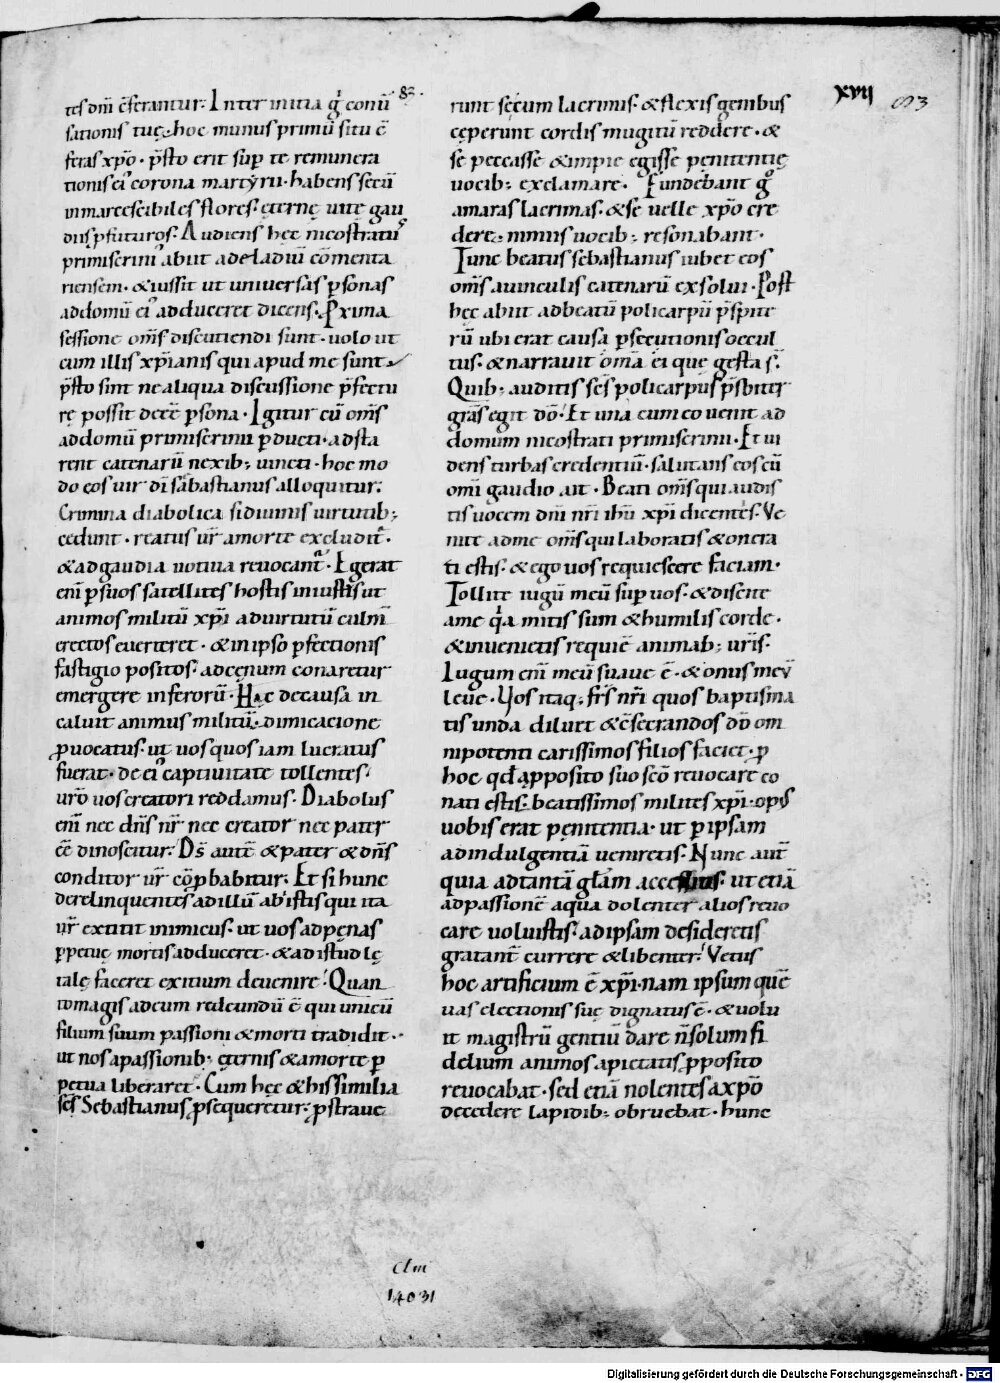 82.
xvij 83
tes dnī c̄secrantur. Inter initia g̊ conū
sationis tuę. hoc munus primū si tu c̄
feras xp̄o. p̄sto erit sup te remunera
tionis ei᾽ corona martyrii. habens secū
inmarcescibiles flores. ęternę uitę gau
diis ꝓfuturos. Audiens hęc nicostrat᾽
primiscrini᾽ abiit ad eladiū cōmenta
riensem. & iussit ut uniuersas ꝑsonas
ad domū ei᾽ adduceret dicens. Proxima
sessione om̄s discutiendi sunt. uolo ut
cum illis xp̄ianis qui apud me sunt
p̄sto sint ne aliqua discussione p̄fectu
rę possit deēē ꝑsona. Igitur cū om̄s
ad domū primiscrinii ꝑducti. adsta
rent catenarū nexib; uincti. hoc mo
do eos uir dī sabastianus alloquitur.
Crimina diabolica si diuinis uirtutib;
cedunt. reatus ur̄ a morte excludit᷑.
& ad gaudia uotiua reuocant᷑. Egerat
enī ꝑ suos satellites hostis iniustus ut
animos militū xp̄i a uirtutū culm̄
erectos euerteret. & in ipso ꝑfectionis
fastigio positos. ad cenum conaretur
emergere inferorū. Hac de causa in
caluit animus militū. dimicacione
ꝓuocatus. ut uos quos iam lucratus
fuerat. de ei᾽ captiuitate tollentes.
uro᷑ uos creatori reddamus. Diabolus
enī nec dn̄s nr̄ nec creator nec pater
ēē dinoscitur. Ds̄ aut̄ & pater & dn̄s
conditor ur̄ cōꝓbabitur. Et si hunc
derelinquentes ad illū abistis qui ita
ur̄ extitit inimicus. ut uos ad pęnas
ꝑpetuę mortis adduceret. & ad istud lę
tale faceret exitium deuenire. Quan
to magis ad eum redeundū ē qui unicū
filium suum passioni & morti tradidit.
ut nos a passionib; ęternis & a morte ꝑ
petua liberaret. Cum hęc & his similia
scs̄ Sebastianus ꝓsequeretur. ꝓstraue
runt sęcum lacrimis. & flexis genibus
cęperunt cordis mugitū reddere. &
se peccasse & impie egisse pęnitentię
uocib; exclamare. Fundebant g̊
amaras lacrimas. & se uelle xp̄o cre
dere. nimiis uocib; resonabant.
Tunc beatus sebastianus iubet eos
om̄s a uinculis catenarū exsolui. Post
hęc abiit ad beatū policarpū p̄sbite
rū ubi erat causa ꝑsecutionis occul
tus. & narrauit om̄a ei quę gesta s̄.
Quib; auditis scs̄ policarpus p̄sbiter
gras̄ egit dō. Et una cum eo uenit ad
domum nicostrati primiscrinii. Et ui
dens turbas credentiū. salutans eos cū
omī gaudio ait. Beati om̄s qui audis
tis uocem dnī nrī ihū xp̄i dicentes. Ve
nite ad me om̄s qui laboratis & onera
ti estis. & ego uos requiescere faciam.
Tollite iugū meū sup uos. & discite
a me q̇a mitis sum & humilis corde.
& inuenietis requiē animab; uris̄.
Iugum enī meū suaue ē. & onus meū
leue. Vos itaq; frs̄ nrī quos baptisma
tis unda diluet & c̄secrandos dō om
nipotenti carissimos filios faciet. ꝓ
hoc qđ a ꝓposito suo scō reuocare co
nati estis. beatissimos milites xp̄i. opus
uobis erat pęnitentia. ut ꝑ ipsam
ad indulgentiā ueniretis. Nunc aut̄
quia ad tantā glam̄ accessistis. ut etiā
ad passionē a qua dolenter alios reuo
care uoluistis. ad ipsam desideretis
gratant̄ currere & libenter. Vetus
hoc artificium ē xp̄i. nam ipsum quē
uas electionis suę dignatus ē. & uolu
it magistrū gentiū dare. n̄ solum fi
delium animos a pietatis ꝓposito
reuocabat. sed etiā nolentes a xp̄o
decedere lapidib; obruebat. hunc
clm
14031
Digitalisierung gefördert durch die Deutsche Forschungsgemeinschaft - DFG